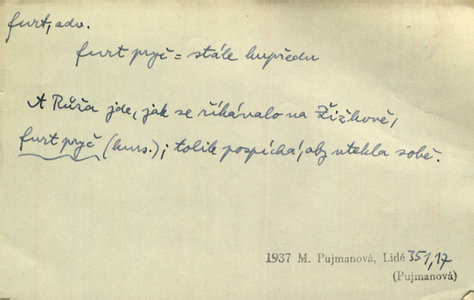 furt, adv.
furt pryč = stále kupředu
A Růža jde, jak se říkávalo na Žižkově,
furt pryč (kurs.); tolik pospíchá, aby utekla sobě.
1937 M. Pujmanová, Lidé 351,17
(Pujmanová)